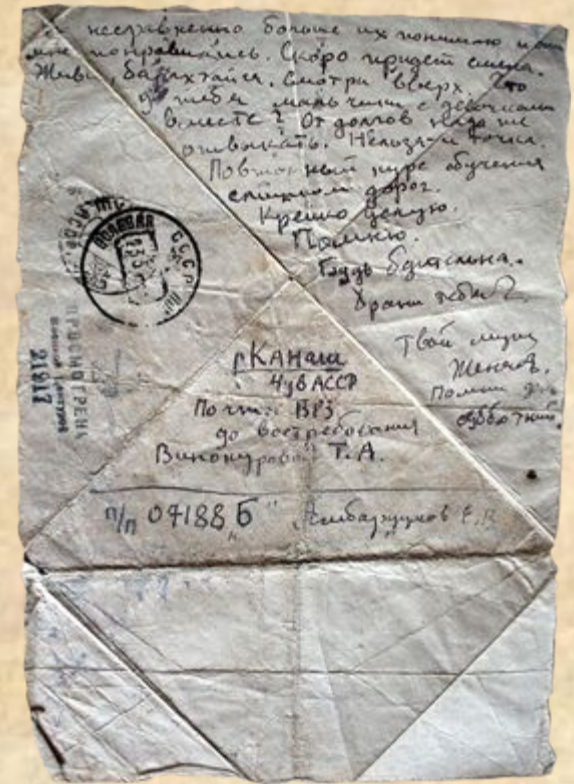 несравненно больше их понимаю и они
мне понравились. Скоро придет смена.
Живи, барахтайся. Смотри вверх. Что
у тебя мальчики с девочками
вместе? От долгов надо же
отвыкать. Нельзя и точка.
Повторный курс обучения
слишком дорог.
Крепко целую.
Помню.
Будь бдительна.
Храни тебя
Твой муж
Женя
Помни
СССР
ПРОСМОТРЕНО
Военной Цензурой
21917
г КАНАШ
ЧУВАССР
Почта ВРЗ
до востребования
Винокуровой Т.А.
п/п 04188 "Б"